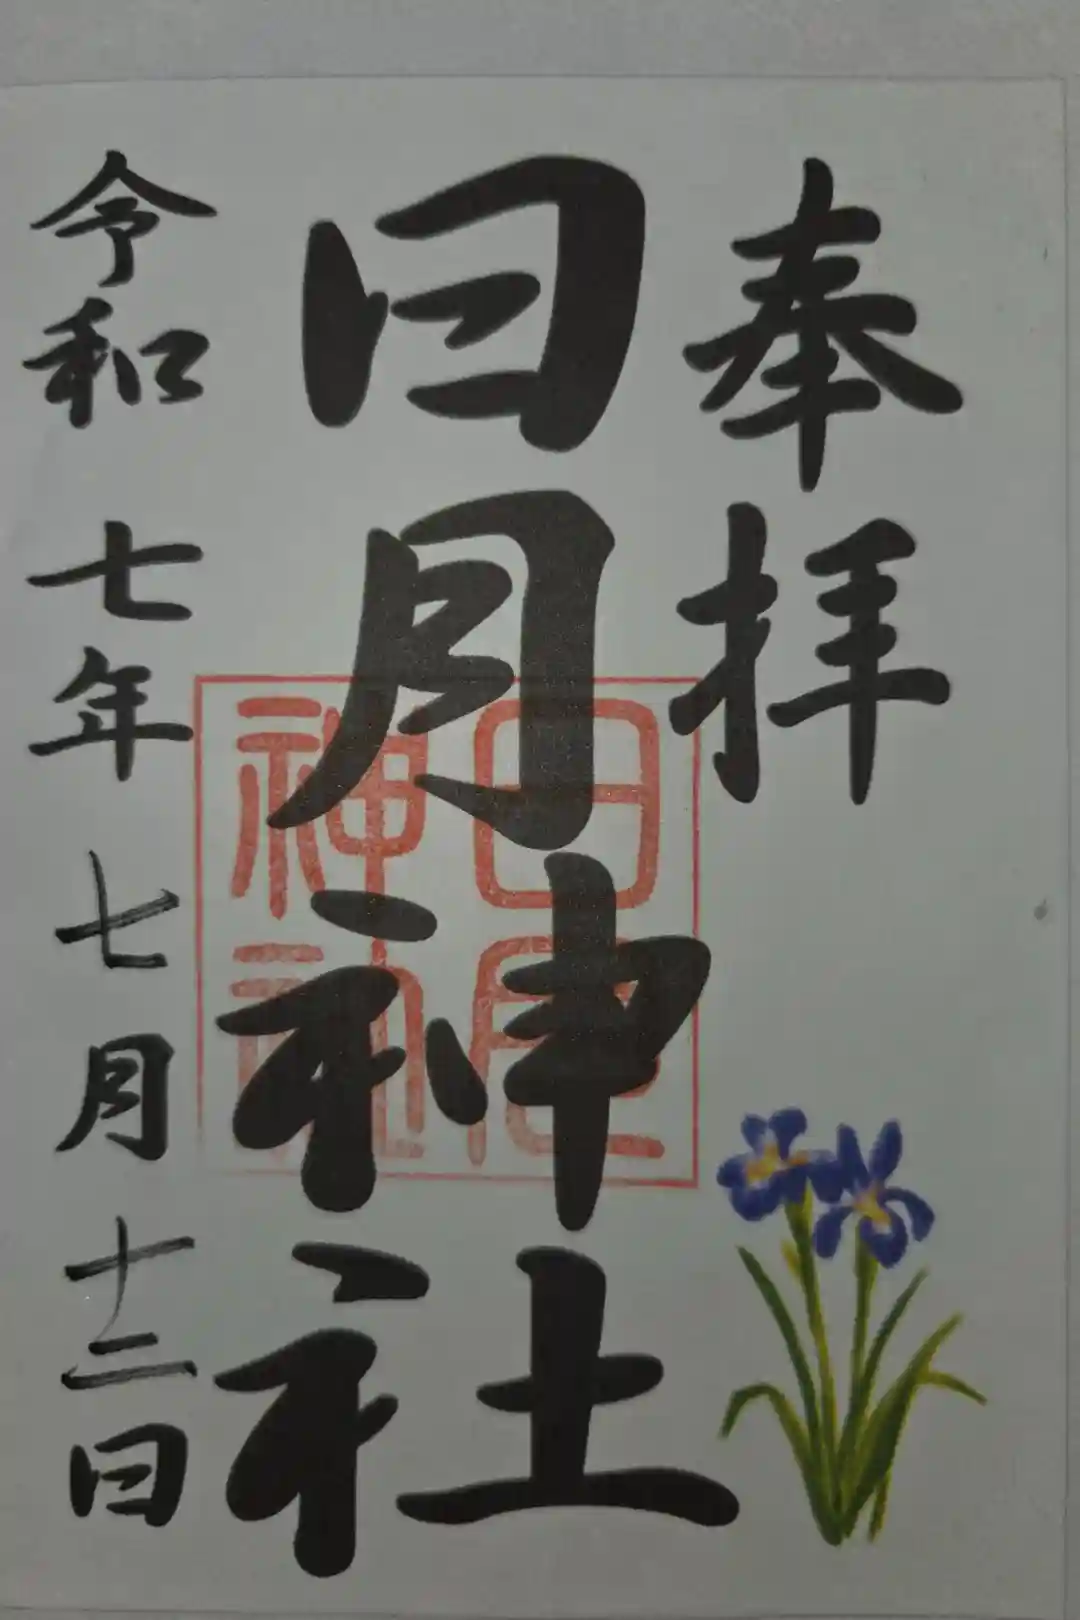 奉拝
日月神社
日月
神社
令和七年七月十二日